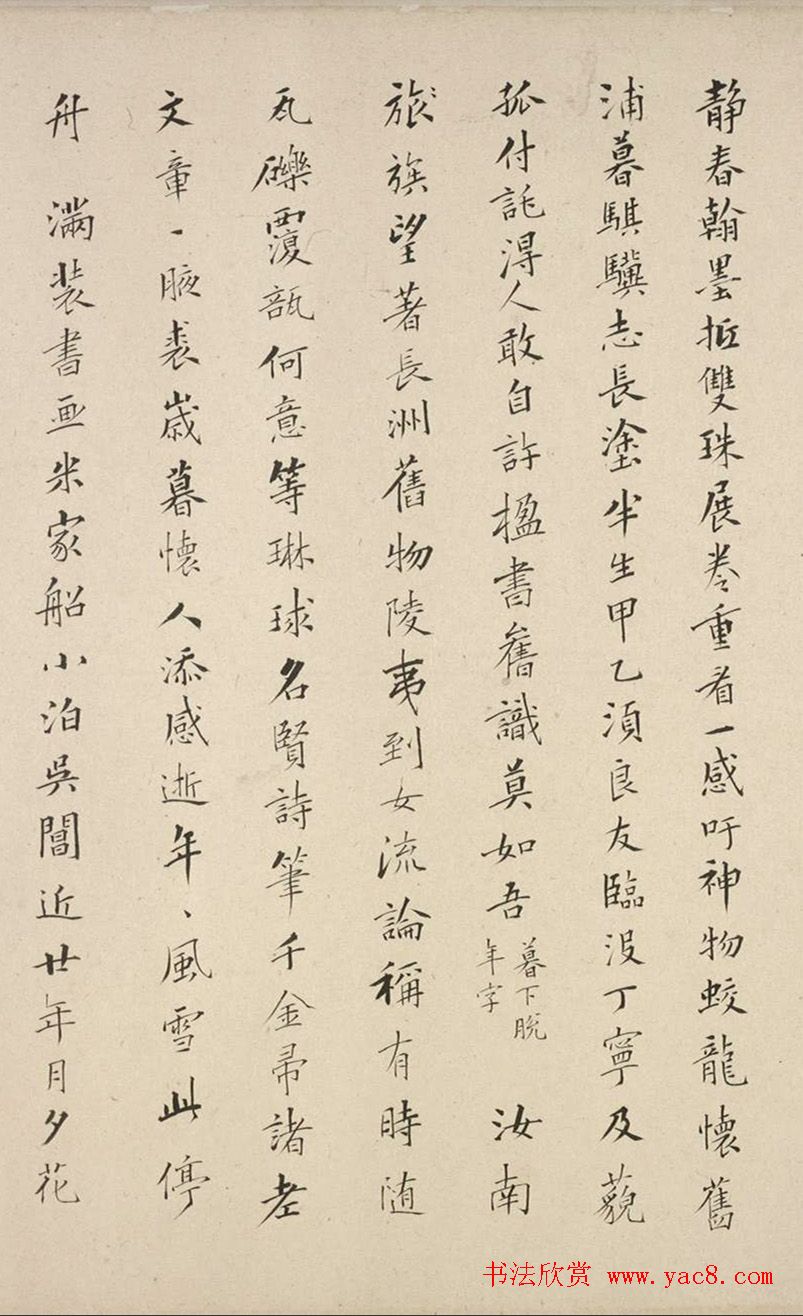 静春翰墨抵雙珠展卷重看一感吁神物蛟龍懷舊
浦暮騏驥志長塗半生甲乙須良友臨沒丁寧及藐
孤付託得人敢自許楹書舊識莫如吾暮下脫年字 汝南
旅族望著長洲舊物陵夷到女流論稱有時随
瓦礫覆瓿何意等琳球名賢詩筆千金帚諸老
文章一腋裘歲暮懷人添感逝年、風雪此停
舟 滿裝書画米家船小泊吳閶近廿年月夕花
书法欣赏 www.yac8.com